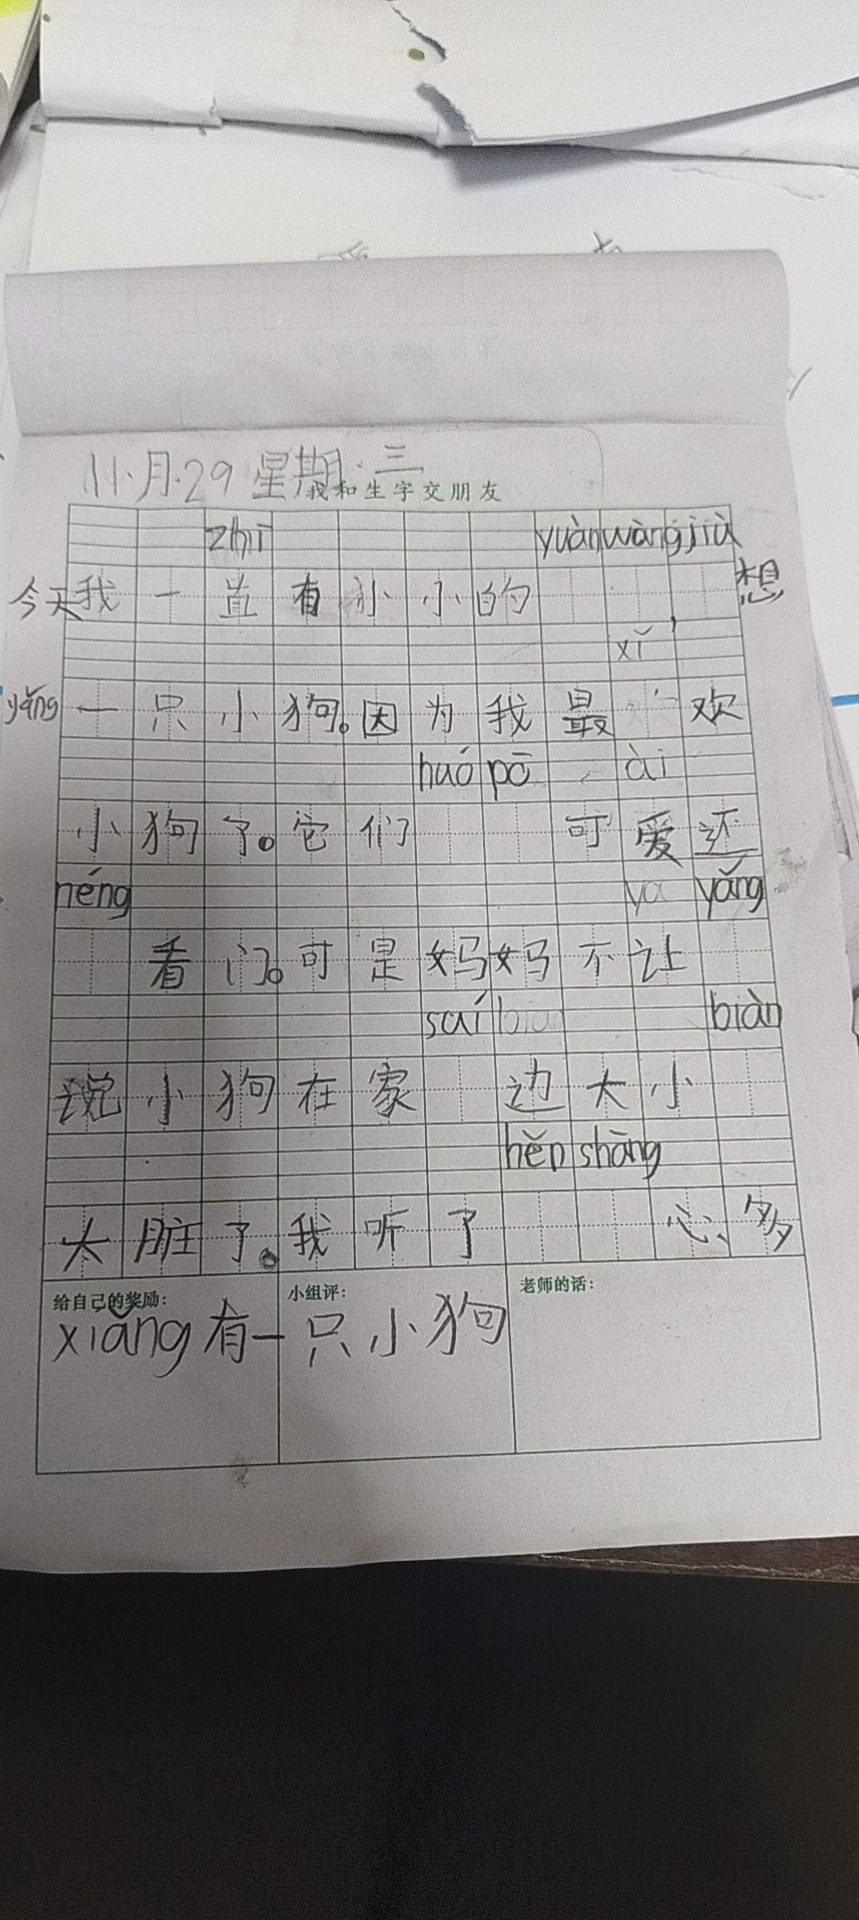 11月.29 星期.三
我和生字交朋友
zhī yuàn wàng jiù
今天我一直有小小的 想
xǐ
yǎng一只小狗。因为我最 欢
huó pō ài
小狗了。它们 可爱还
néng yǎng
看门。可是妈妈不让
saí biàn
说小狗在家 边大小
hěn shāng
太脏了。我听了 心、多
给自己的奖励: 小组评: 老师的话:
xiǎng有一只小狗